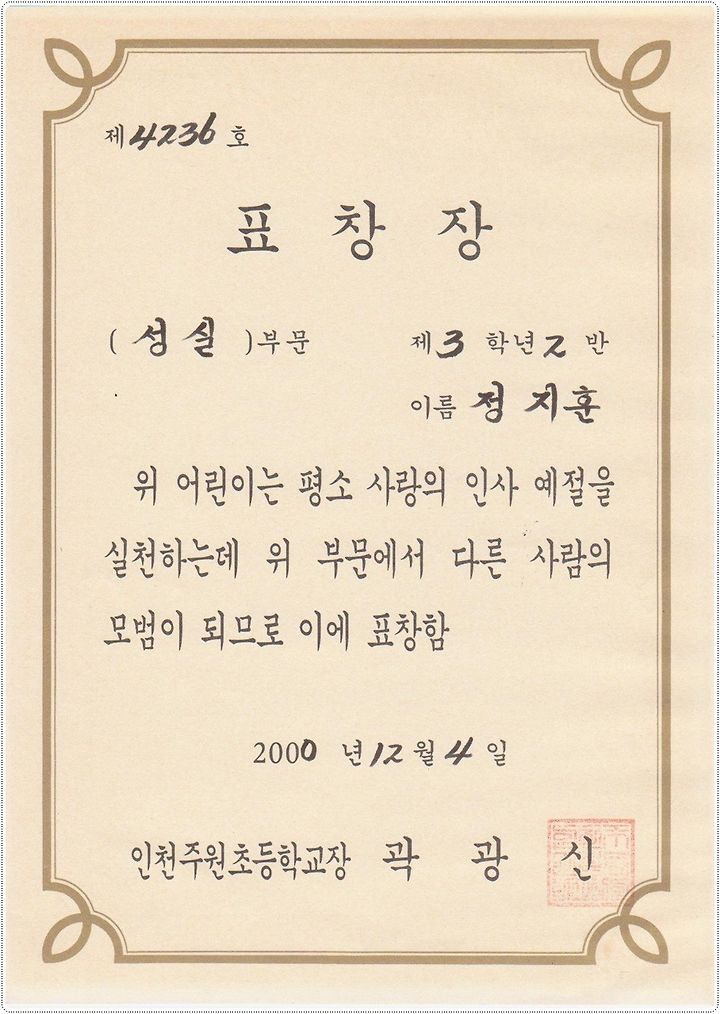 제4236호
표 창 장
( 성실 )부문 제3 학년2 반
이름 정 지훈
위 어린이는 평소 사랑의 인사 예절을
실천하는데 위 부문에서 다른 사람의
모범이 되므로 이에 표창함
2000 년12월4 일
인천주원초등학교장 곽 광 신